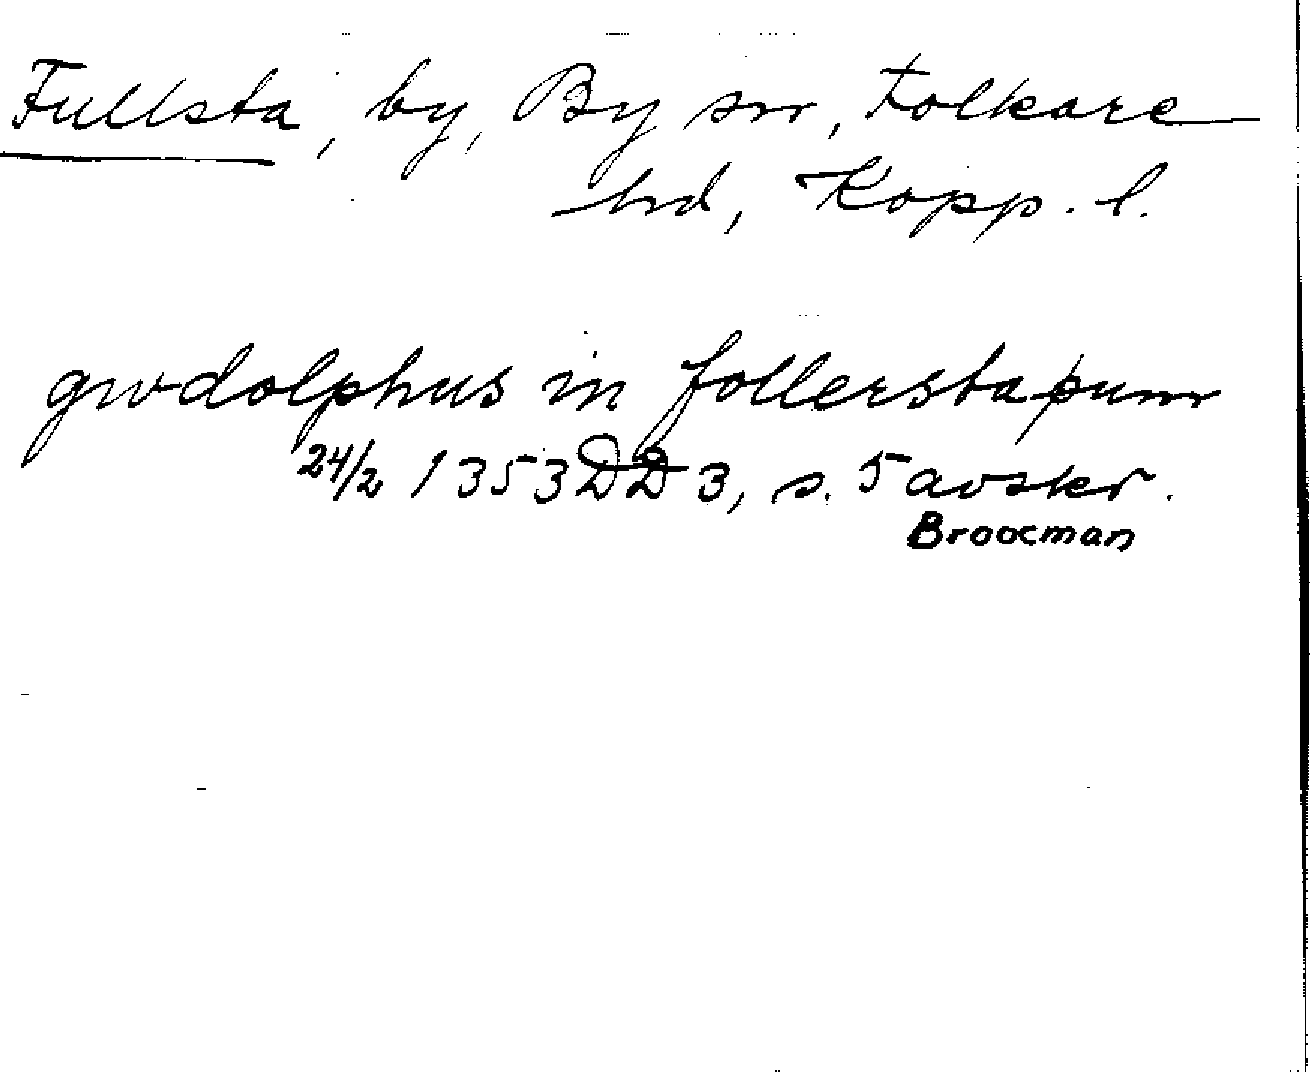 Fullsta, by, By sn, Folkare
hd, Kopp. l.
gwdolphus in follerstaþum
24/2 1353 DD 3, s. 5 avskr.
Broocman